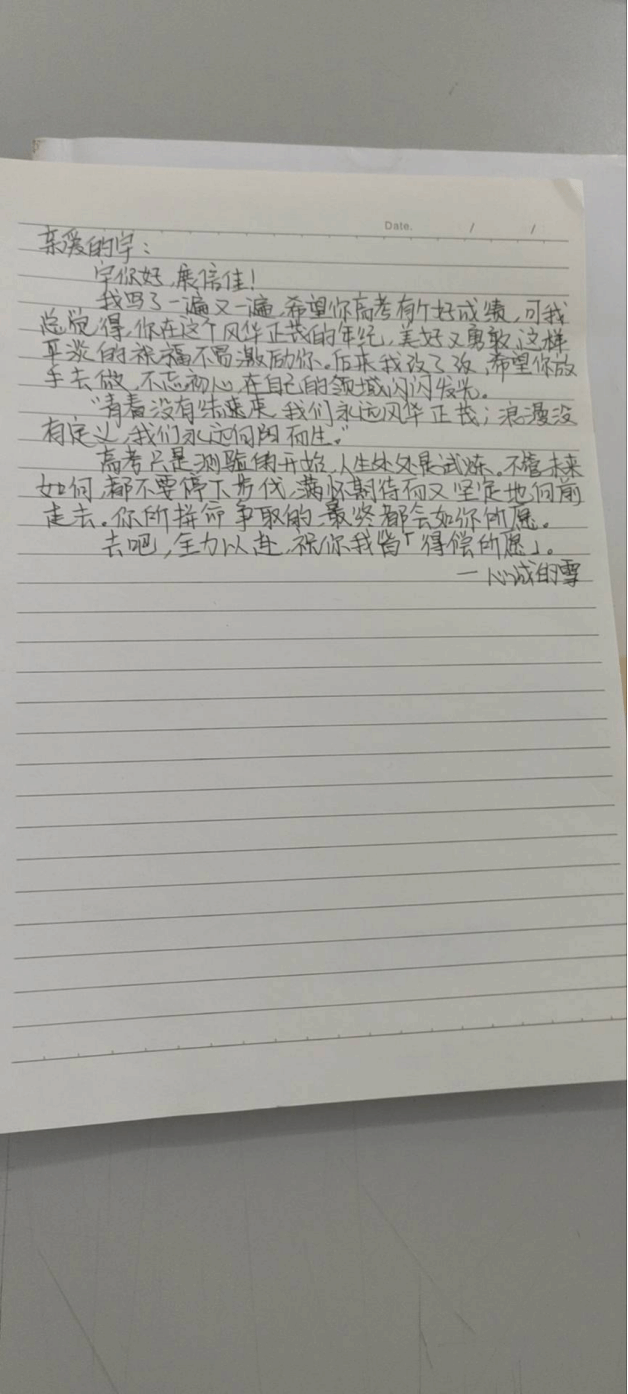 Date. / /
亲爱的宇：
宇你好，展信佳！
我写了一遍又一遍，希望你高考有个好成绩，可我
总觉得，你在这个风华正茂的年纪，美好又勇敢，这样
平淡的祝福不足激励你。后来我改了改，希望你放
手去做，不忘初心，在自己的领域闪闪发光。
“青春没有结束，我们永远风华正茂；浪漫没
有定义，我们永远向阳而生。”
高考只是测验的开始，人生处处是试炼。不管未来
如何，都不要停下步伐，满怀期待而又坚定地向前
走去。你所拼命争取的，最终都会如你所愿。
去吧，全力以赴，祝你我皆「得偿所愿」。
—心诚的雪